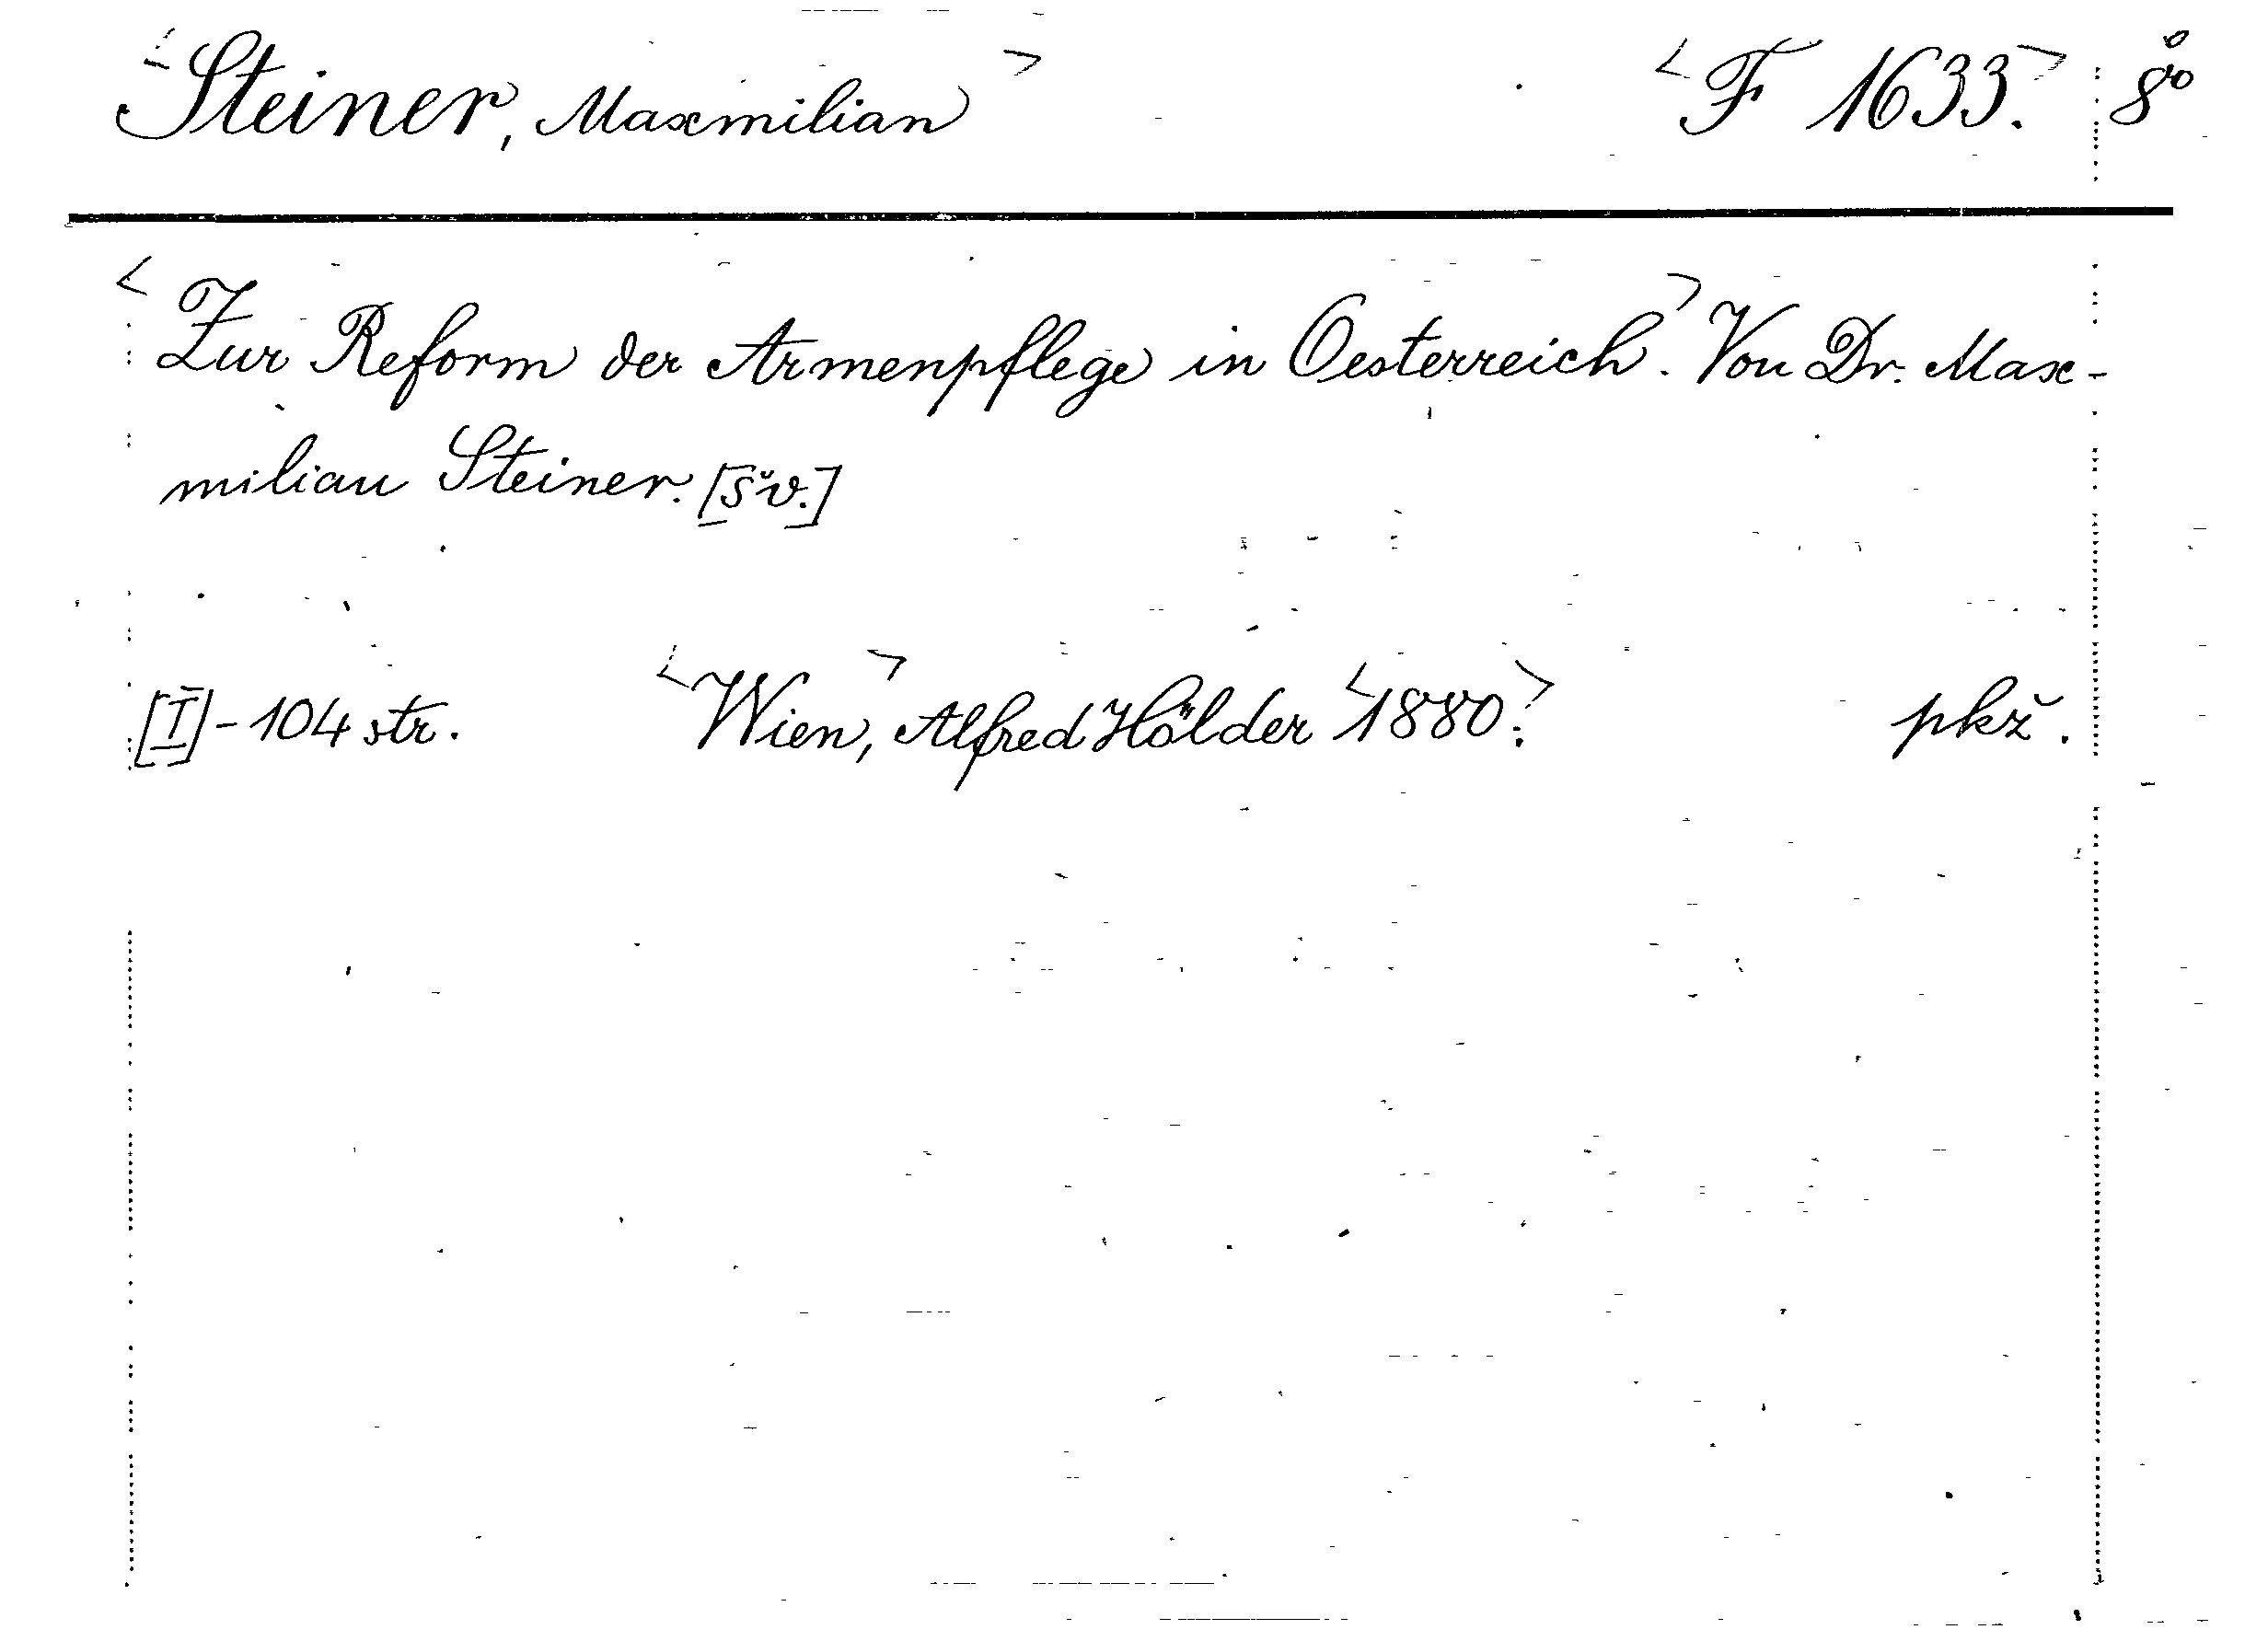 <Steiner, Maxmilian> <F 1633.> 8°
<Zur Reform der Armenpflege in Oesterreich.> Von Dr. Max-
milian Steiner. [Šv.]
[I]-104 str. <Wien,> Alfred Hölder <1880.> pkž.